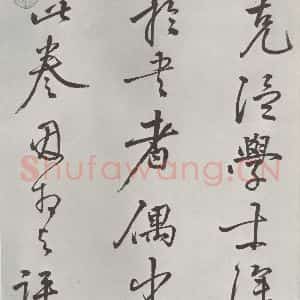 克溫學士深
於書者偶出
此卷因相與評
Shufawang.CN